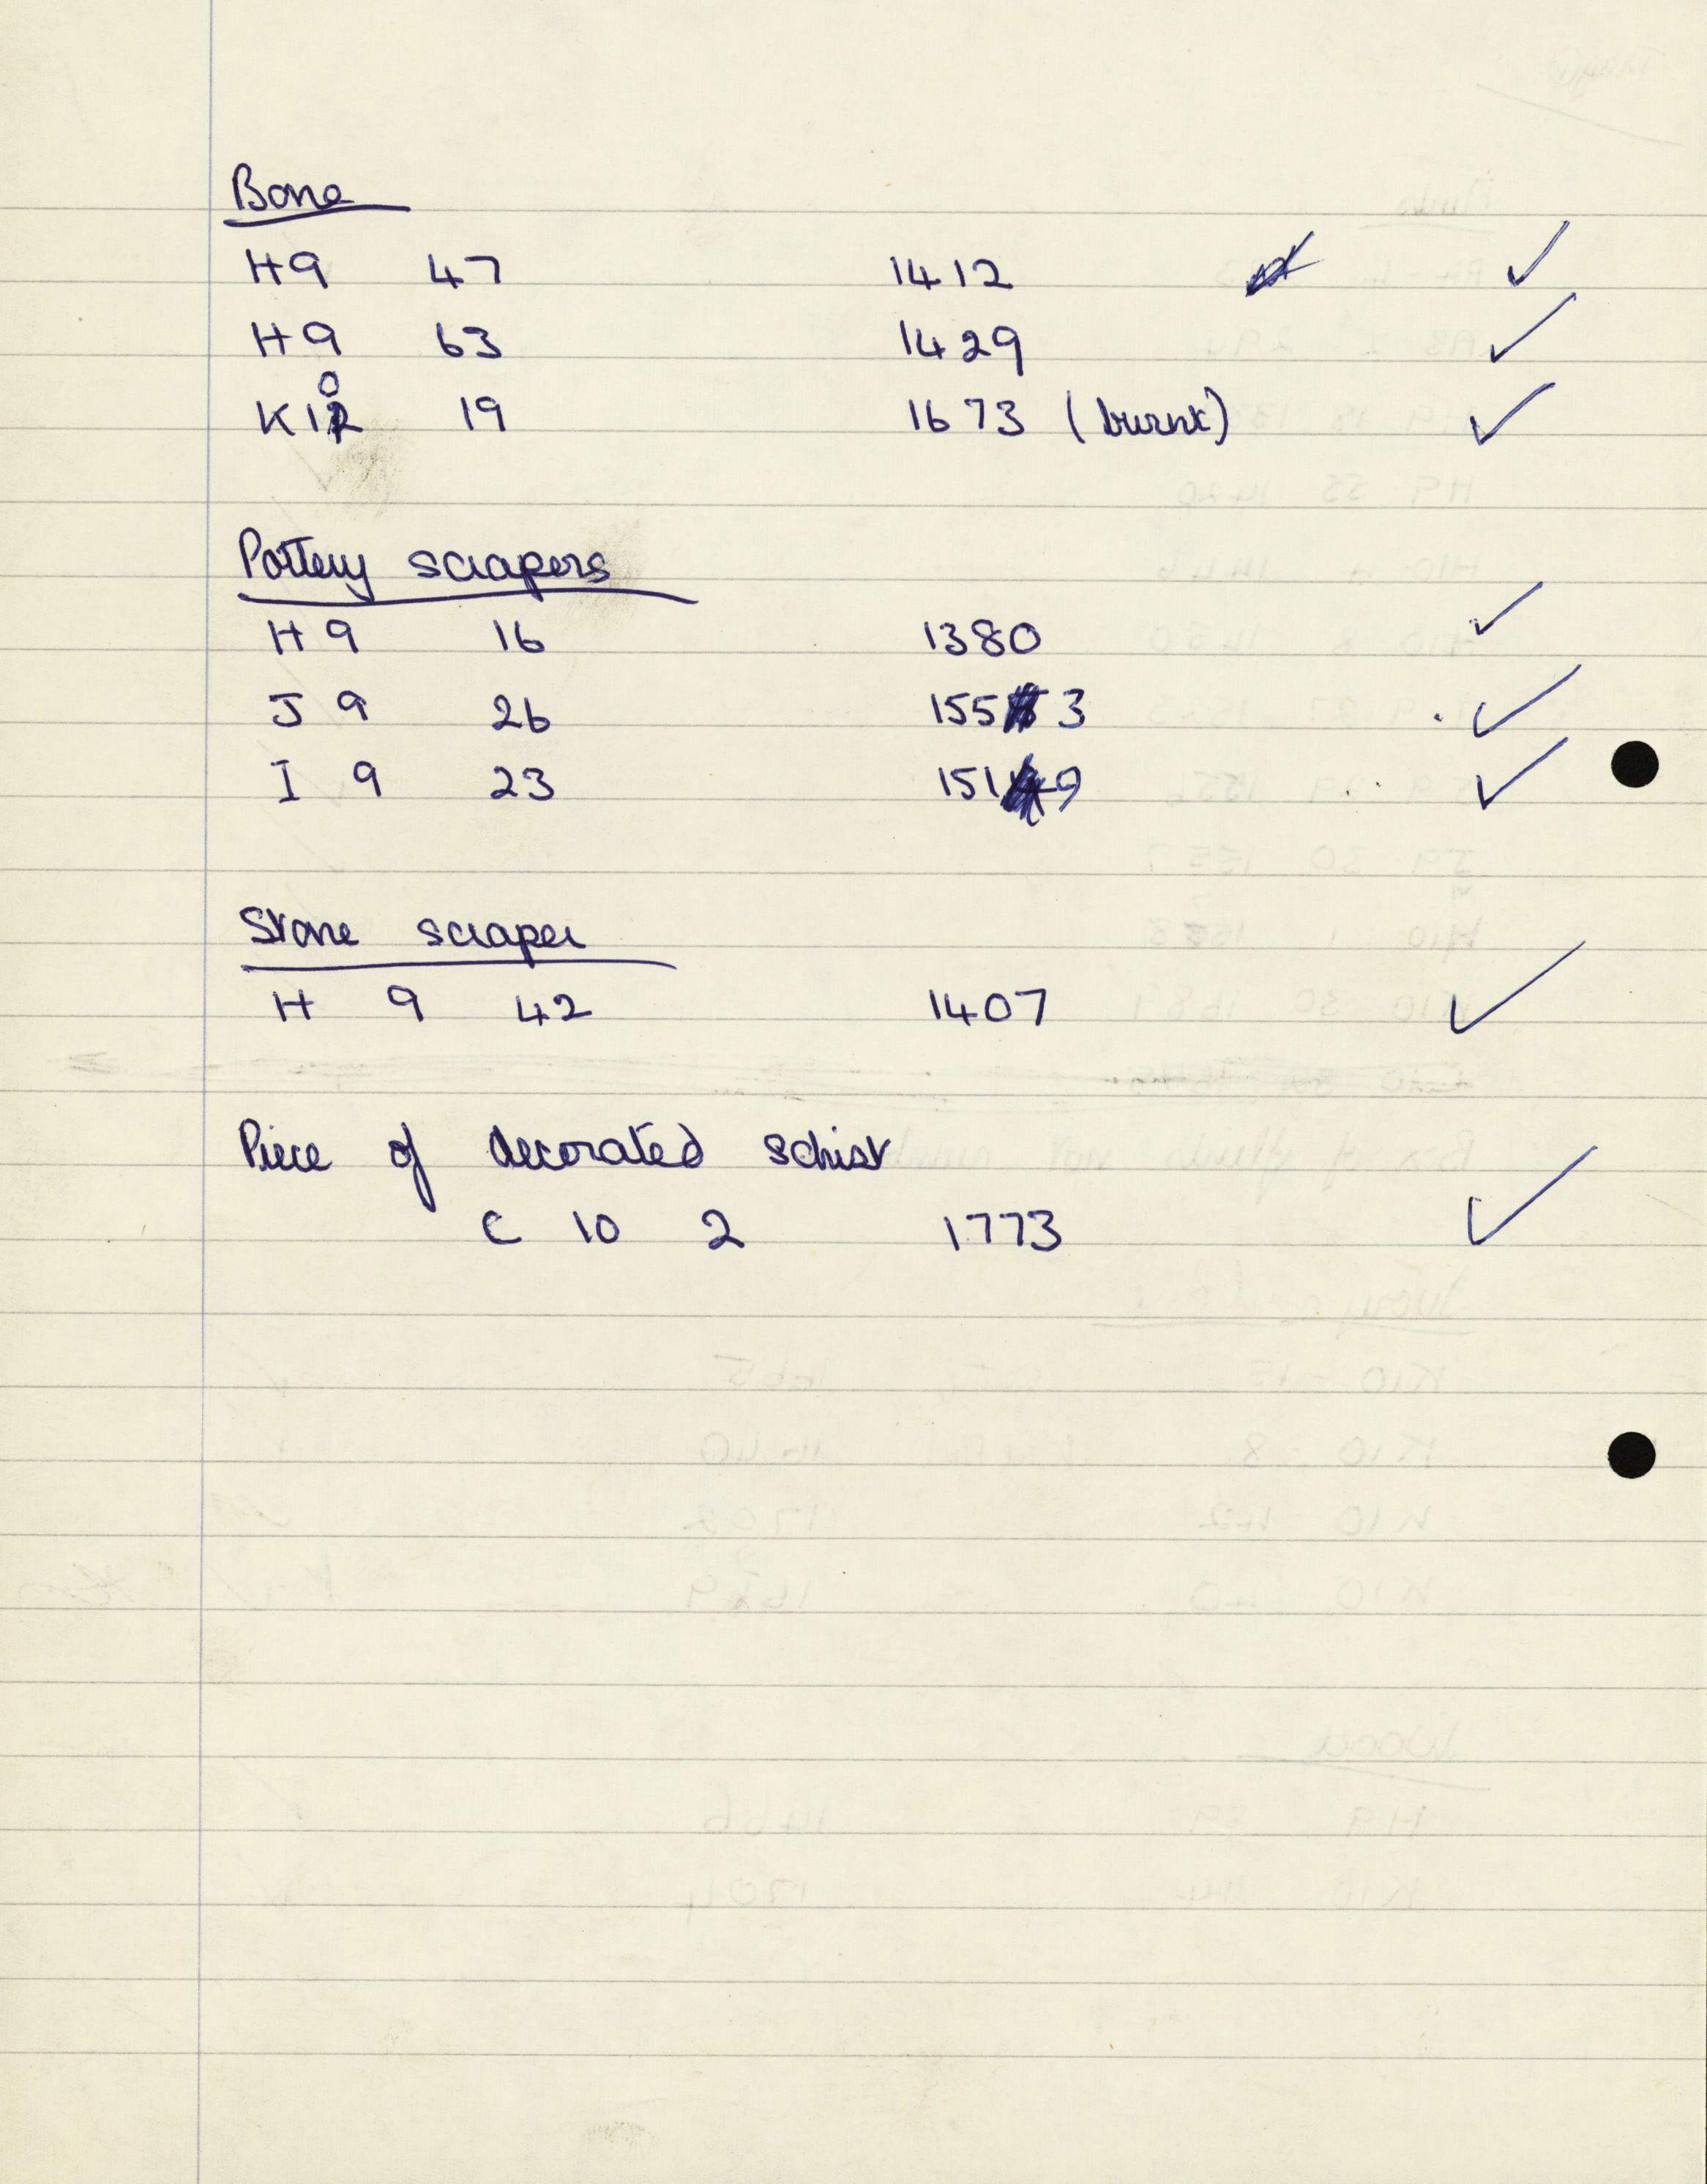 Bone
H9 47 1412 ✓
H9 63 1429 ✓
K10 19 1673 (burnt) ✓
Pottery scrapers
H 9 16 1380 ✓
J 9 26 1553 ✓
I 9 23 1519 ✓
Stone scraper
H 9 42 1407 ✓
Piece of decorated schist
C 10 2 1773 ✓